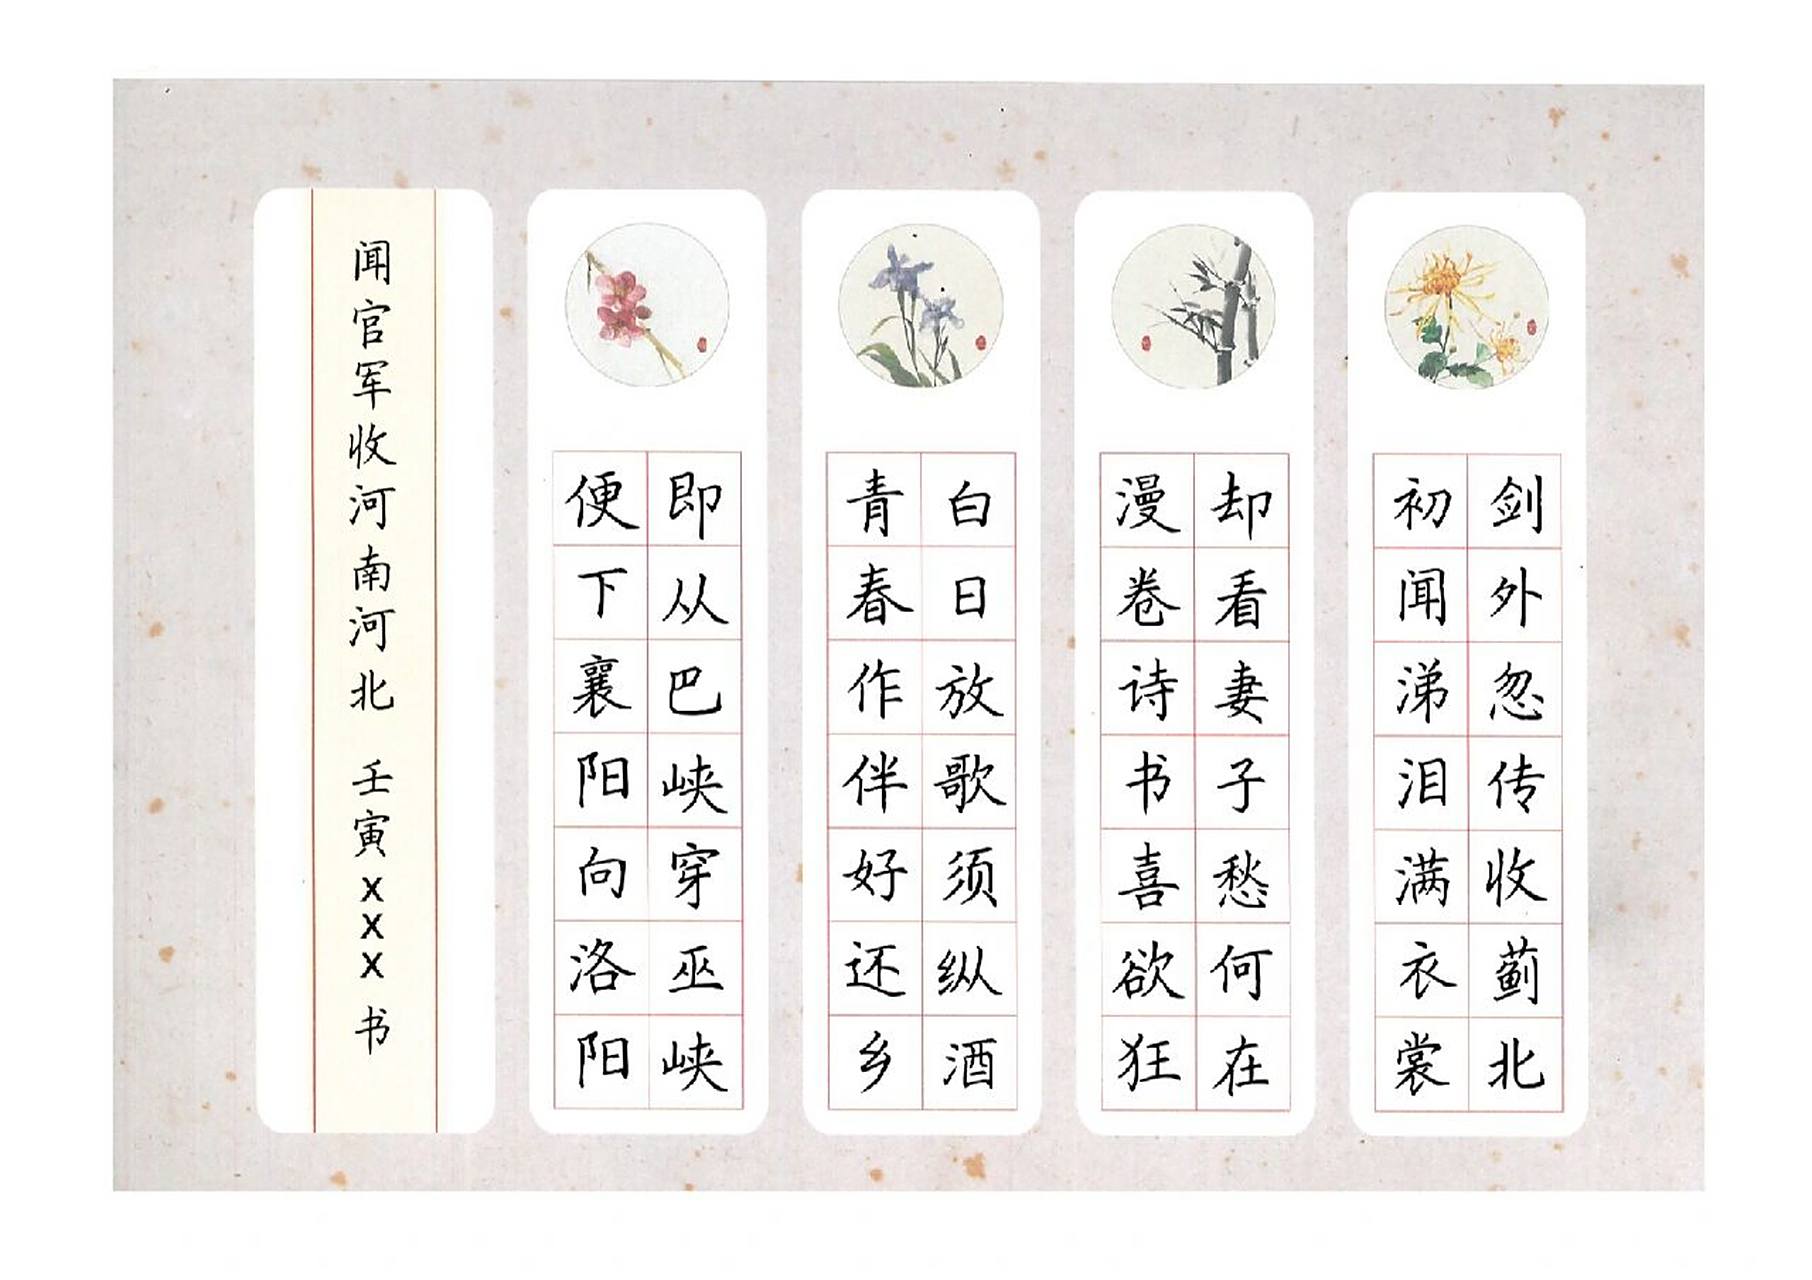 剑外忽传收蓟北
初闻涕泪满衣裳
却看妻子愁何在
漫卷诗书喜欲狂
白日放歌须纵酒
青春作伴好还乡
即从巴峡穿巫峡
便下襄阳向洛阳
闻官军收河南河北 壬寅XXX书